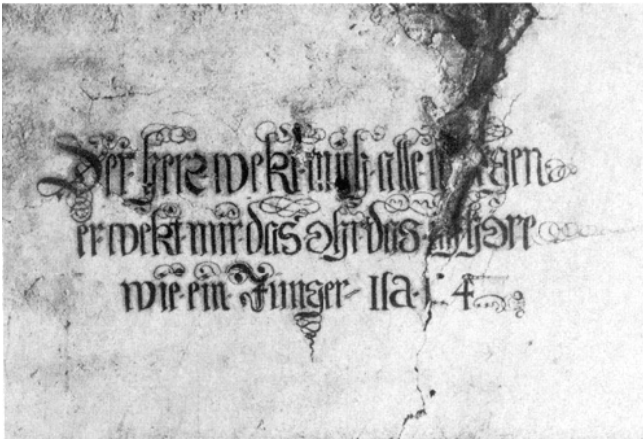 Der herr wekt mich alle morgen
er wekt mir das Ohr das ich höre
wie ein Junger Isa. L. 4